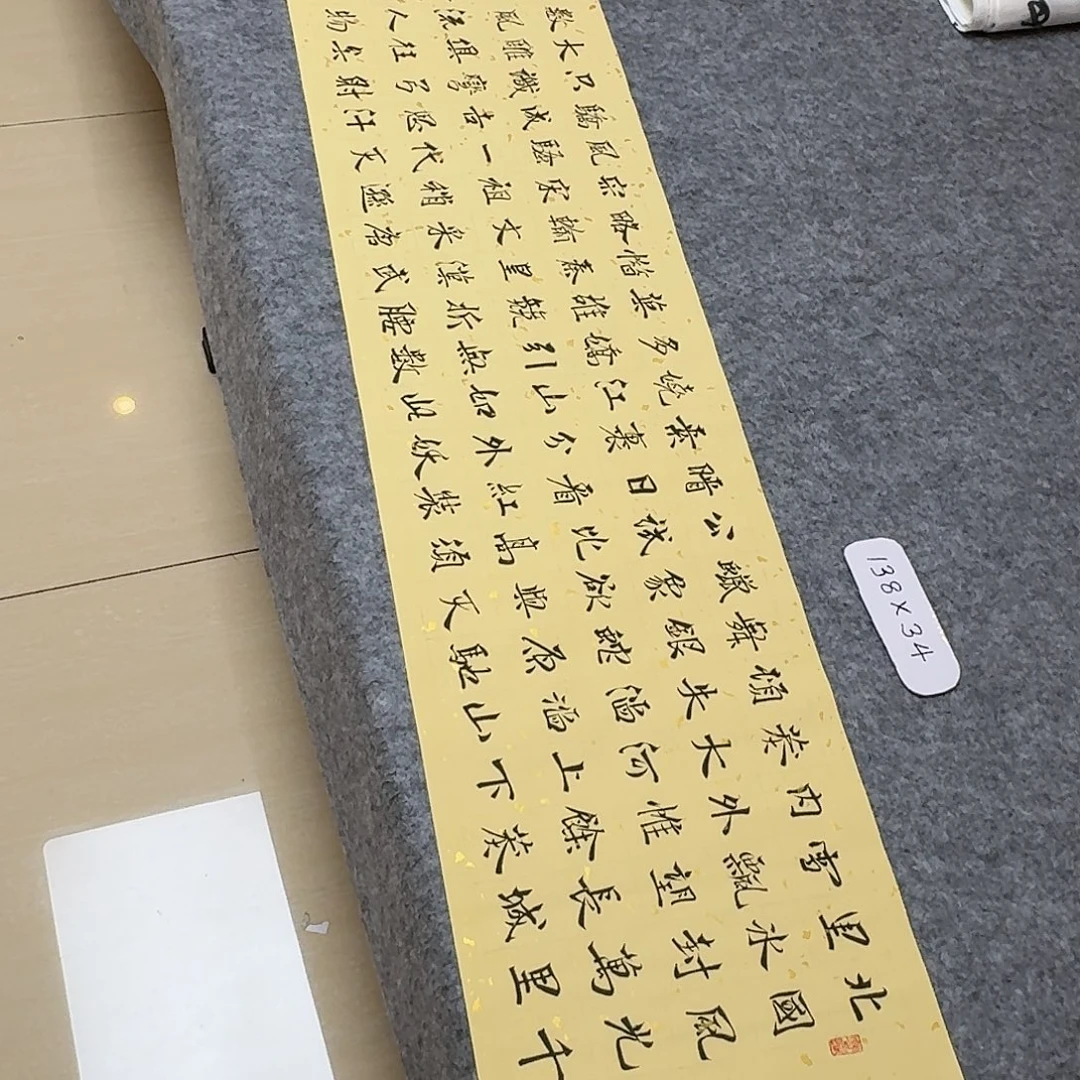 北國風光千
里冰封萬里
雪飄望長城
内外惟餘莽
莽大河上下
頓失滔滔山
舞銀蛇原馳
蠟象欲與天
公試比高須
晴日看紅裝
素裹分外妖
嬈江山如此
多嬌引無數
英雄競折腰
惜秦皇漢武
略輸文采唐
宗宋祖稍遜
風騷一代天
驕成吉思汗
只識彎弓射
大雕俱往矣
數風流人物
138×34